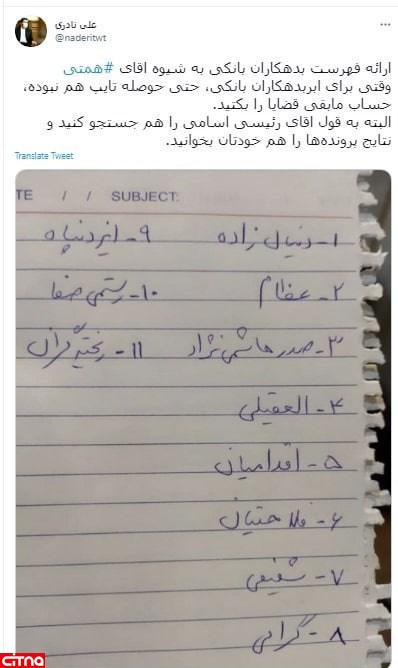 علی نادری
@naderitwt
ارائه فهرست بدهکاران بانکی به شیوه اقای #همتی
وقتی برای ابربدهکاران بانکی، حتی حوصله تایپ هم نبوده،
حساب مابقی قضایا را بکنید.
البته به قول اقای رئیسی اسامی را هم جستجو کنید و
نتایج پرونده‌ها را هم خودتان بخوانید.
Translate Tweet
TE / / SUBJECT:
۱- دنیال زاده
۹- انیردنپاه
۲- عظام
۱۰- رستمی صفا
۳- صدر هاشمی نژاد
۱۱- ریخته گران
۴- العقیلی
۵- اقدامیان
۶- فلاحتیان
۷- شفیعی
۸- گرامی
CITNA